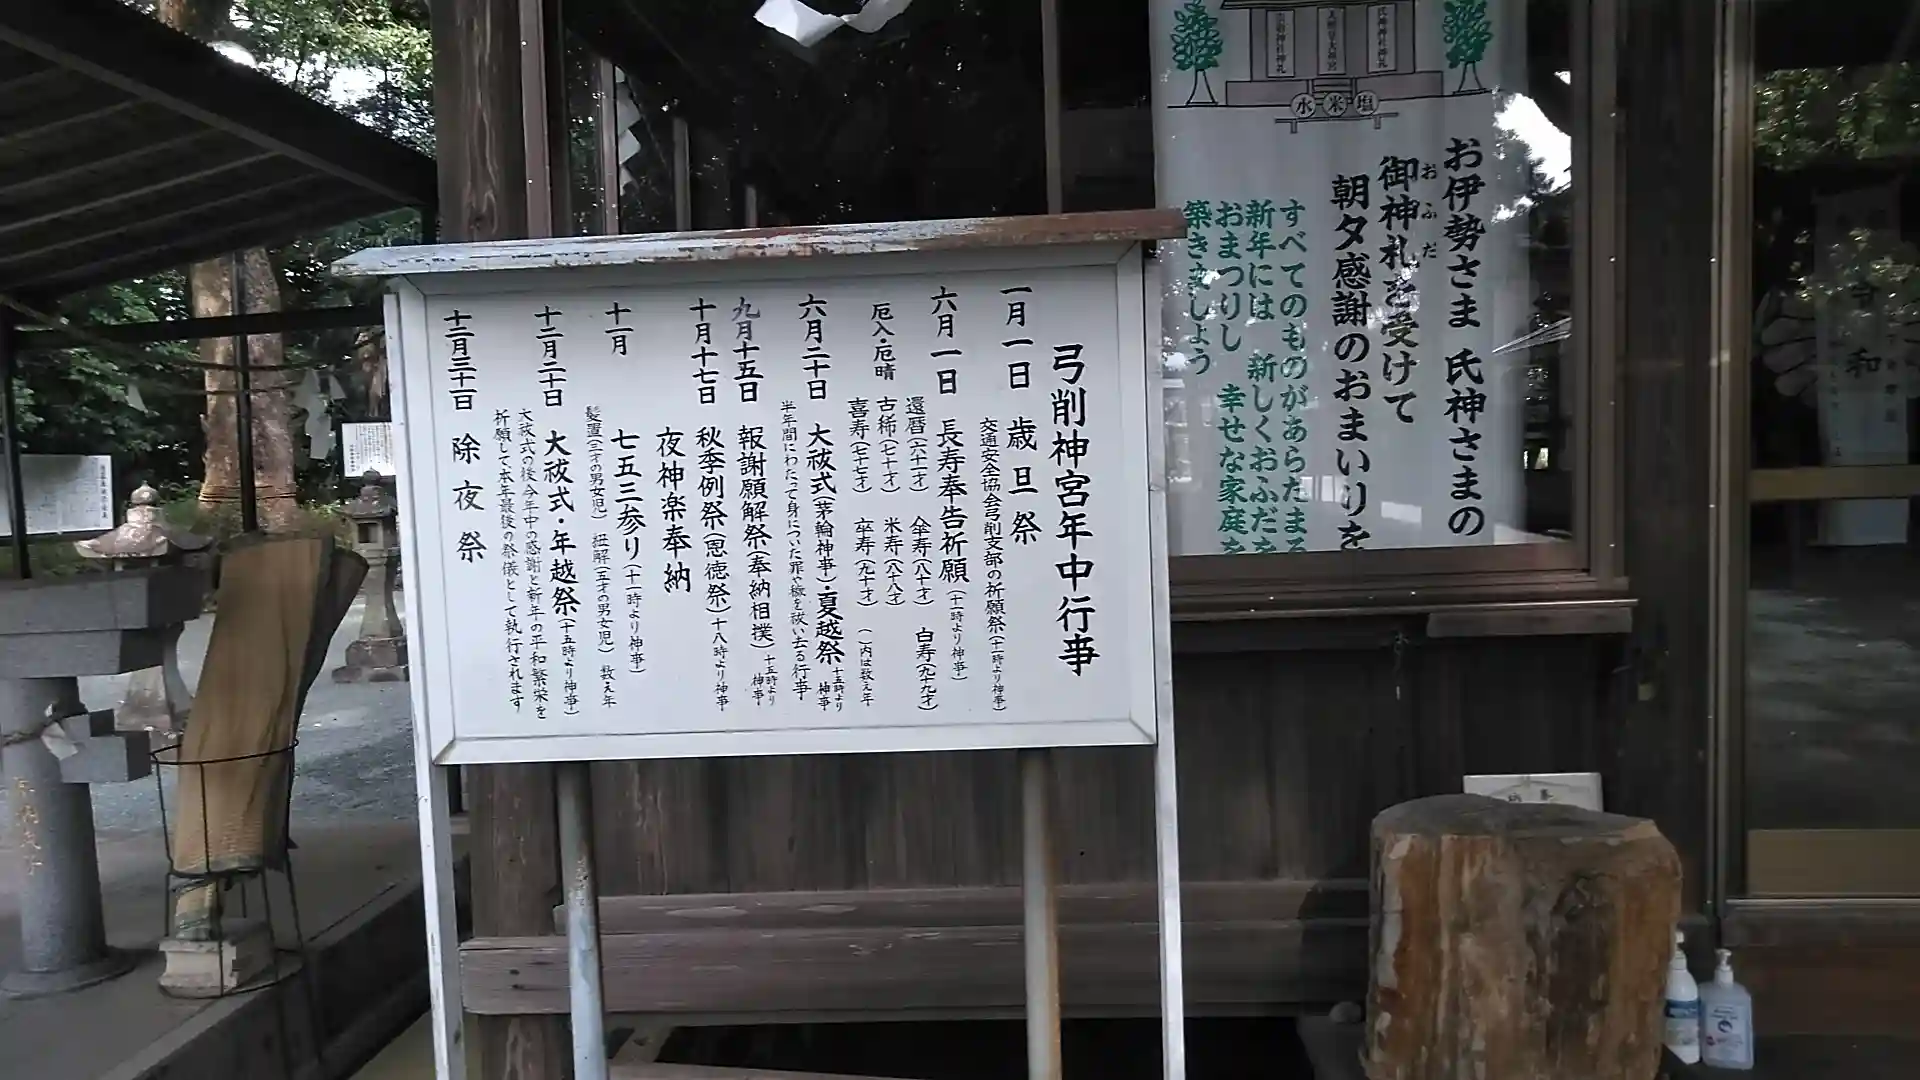 弓削神宮年中行事
一月一日 歳旦祭
交通安全協会弓削支部の祈願祭(十一時より神事)
六月一日 長寿奉告祈願(十一時より神事)
還暦(六十一才) 傘寿(八十才) 白寿(九十九才)
厄入・厄晴 古稀(七十才) 米寿(八十八才)
喜寿(七十七才) 卒寿(九十才) ( )内は数え年
六月三十日 大祓式(茅輪神事)・夏越祭 十五時より神事
半年間にわたって身についた罪や穢を祓い去る行事
九月十五日 報謝願解祭(奉納相撲) 十五時より神事
十月十七日 秋季例祭(恩徳祭)十八時より神事
夜神楽奉納
十一月 七五三参り(十一時より神事)
髪置(三才の男女児) 紐解(五才の男女児) 数え年
十二月三十日 大祓式・年越祭(十五時より神事)
大祓式の後今年中の感謝と新年の平和繁栄を
祈願して本年最後の祭儀として執行されます
十二月三十一日 除夜祭
水 米 塩
お伊勢さま 氏神さまの
御神札を受けて
おふだ
朝夕感謝のおまいりを
すべてのものがあらたまる
新年には 新しくおふだを
おまつりし 幸せな家庭を
築きましょう
令和